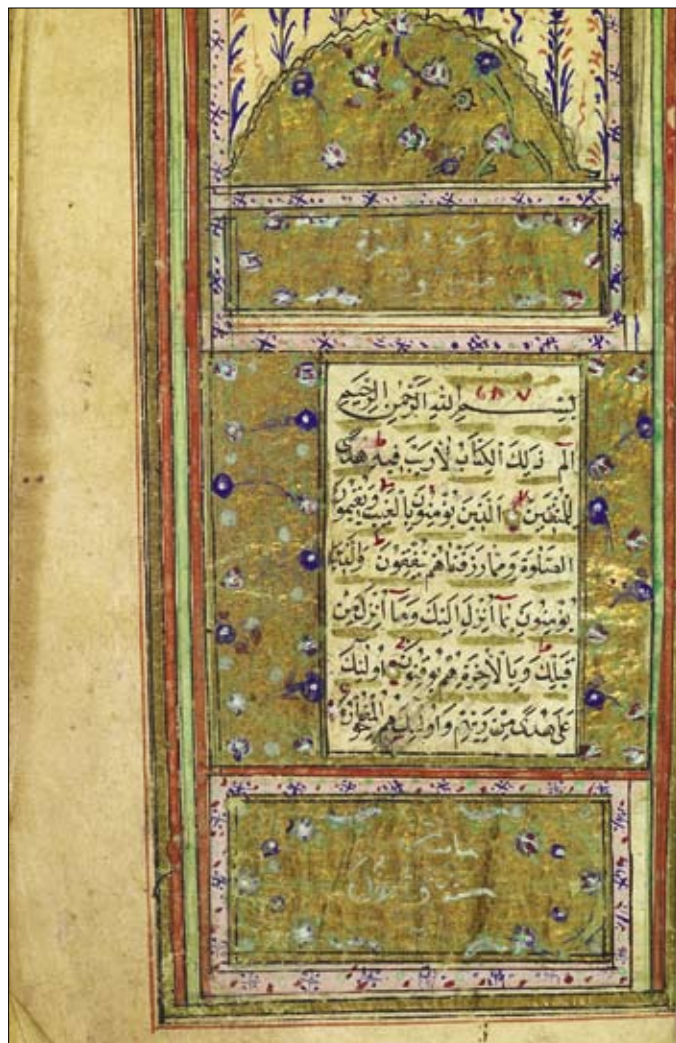 بِسْمِ اللهِ الرَّحْمٰنِ الرَّحِيمِ
الم ذٰلِكَ الْكِتَابُ لَا رَيْبَ فِيهِ هُدًى
لِلْمُتَّقِينَ الَّذِينَ يُؤْمِنُونَ بِالْغَيْبِ وَيُقِيمُونَ
الصَّلٰوةَ وَمِمَّا رَزَقْنَاهُمْ يُنْفِقُونَ وَالَّذِينَ
يُؤْمِنُونَ بِمَا اُنْزِلَ اِلَيْكَ وَمَا اُنْزِلَ مِنْ
قَبْلِكَ وَبِالْاٰخِرَةِ هُمْ يُوقِنُونَ اُولٰئِكَ
عَلٰى هُدًى مِنْ رَبِّهِمْ وَاُولٰئِكَ هُمُ الْمُفْلِحُونَ